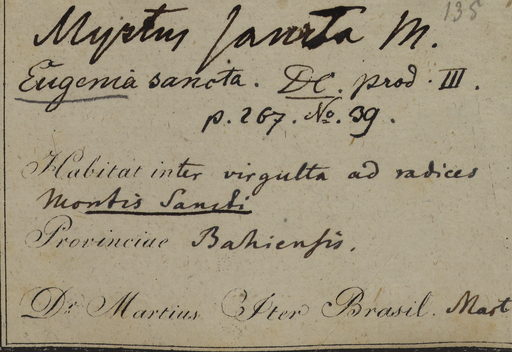 135
Myrtus sancta M.
Eugenia sancta. DC. prod. III.
p. 267. No. 39.
Habitat inter virgulta ad radices
Montis Sancti
Provinciae Bahiensis.
Dr. Martius Iter Brasil. Mart